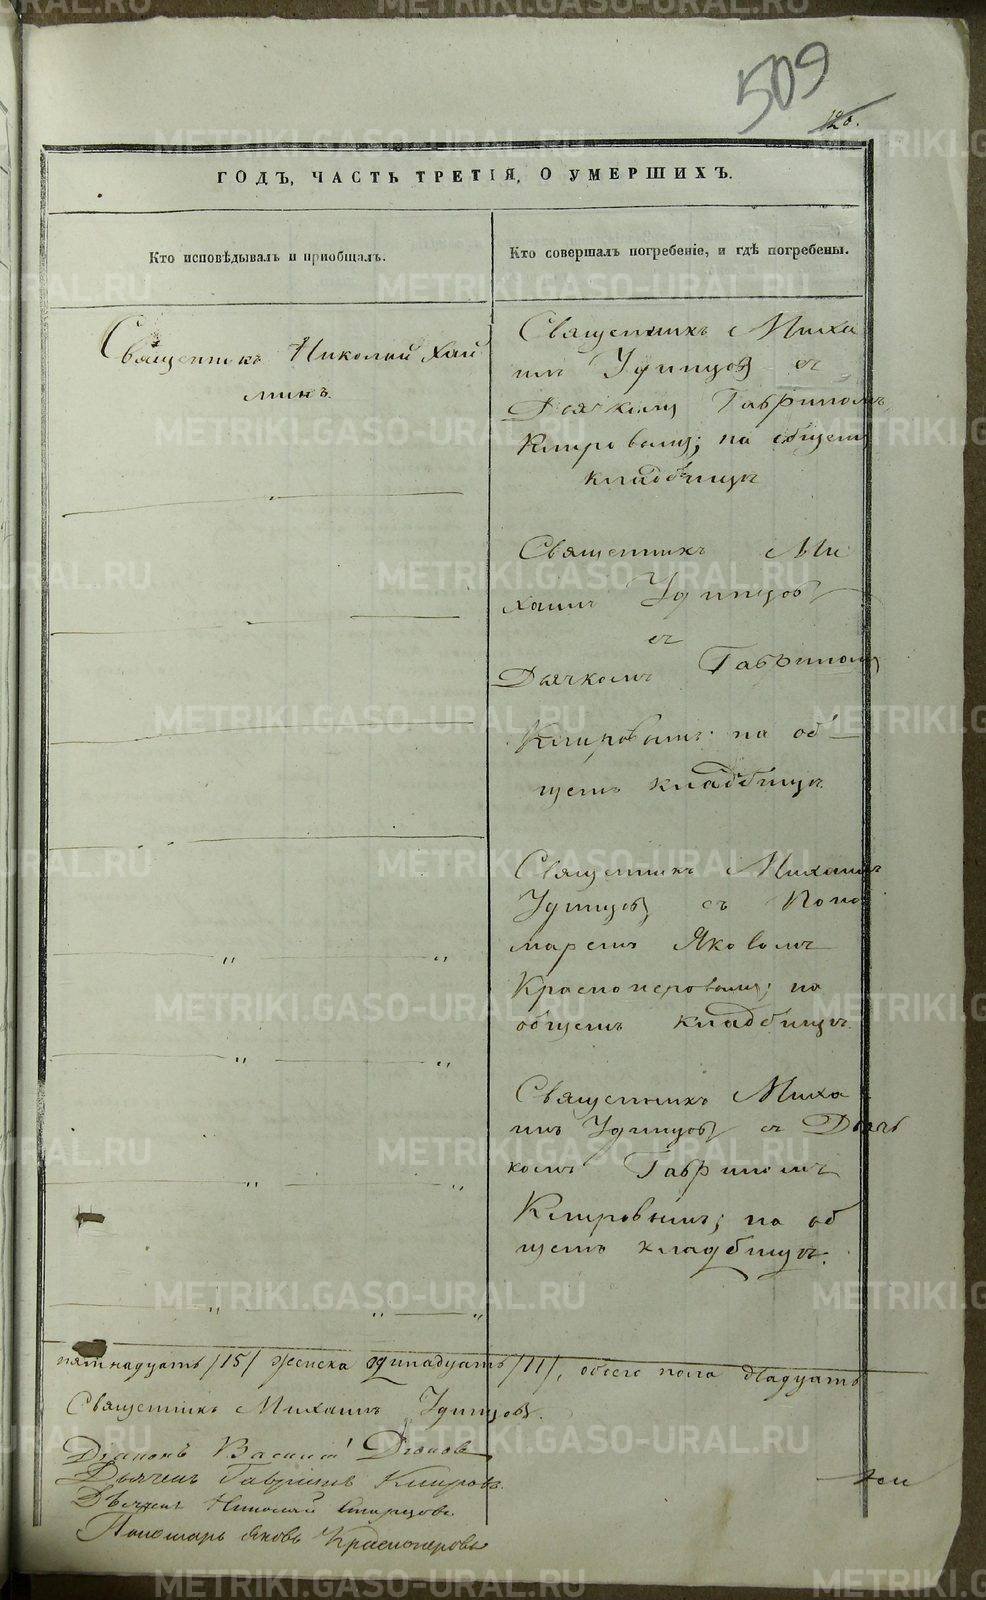 509
126.
ГОДЪ, ЧАСТЬ ТРЕТІЯ, О УМЕРШИХЪ.
Кто исповѣдывалъ и приобщалъ.
Кто совершалъ погребеніе, и гдѣ погребены.
Священникъ Николай Хай
минъ.
Священникъ Миха
илъ Удинцовъ съ
Дьячкомъ Гавриломъ
Клировымъ; на общемъ
кладбищѣ
Священникъ Ми
хаилъ Удинцовъ
съ
Дьячкомъ Гавриломъ
Клировымъ; на об
щемъ кладбищѣ.
Священникъ Михаилъ
Удинцовъ съ Поно
маремъ Яковомъ
Краснонеровымъ; на
общемъ кладбищѣ.
Священникъ Миха
илъ Удинцовъ съ Дьяч
комъ Гавриломъ
Клировымъ; на об
щемъ кладбищѣ.
пятнадцать /15/ женска одинадцать /11/, обоего пола двадцать
Священникъ Михаилъ Удинцовъ.
Діаконъ Василій
Дьячекъ Гаврилъ Клировъ.
Дьячекъ Николай
Пономарь Яковъ Краснонеровъ
METRIKI.GASO-URAL.RU